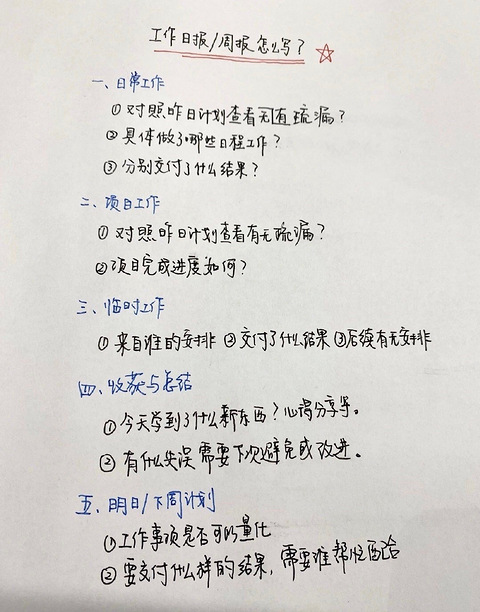 工作日报/周报怎么写？
一、日常工作
①对照昨日计划查看无有疏漏？
②具体做了哪些日程工作？
③分别交付了什么结果？
二、项目工作
①对照昨日计划查看有无疏漏？
②项目完成进度如何？
三、临时工作
①来自谁的安排②交付了什么结果③后续有无安排
四、收获与总结
①今天学到了什么新东西？心得分享等。
②有什么失误需要下次避免或改进。
五、明日/下周计划
①工作事项是否可以量化
②要交付什么样的结果，需要谁帮忙配合